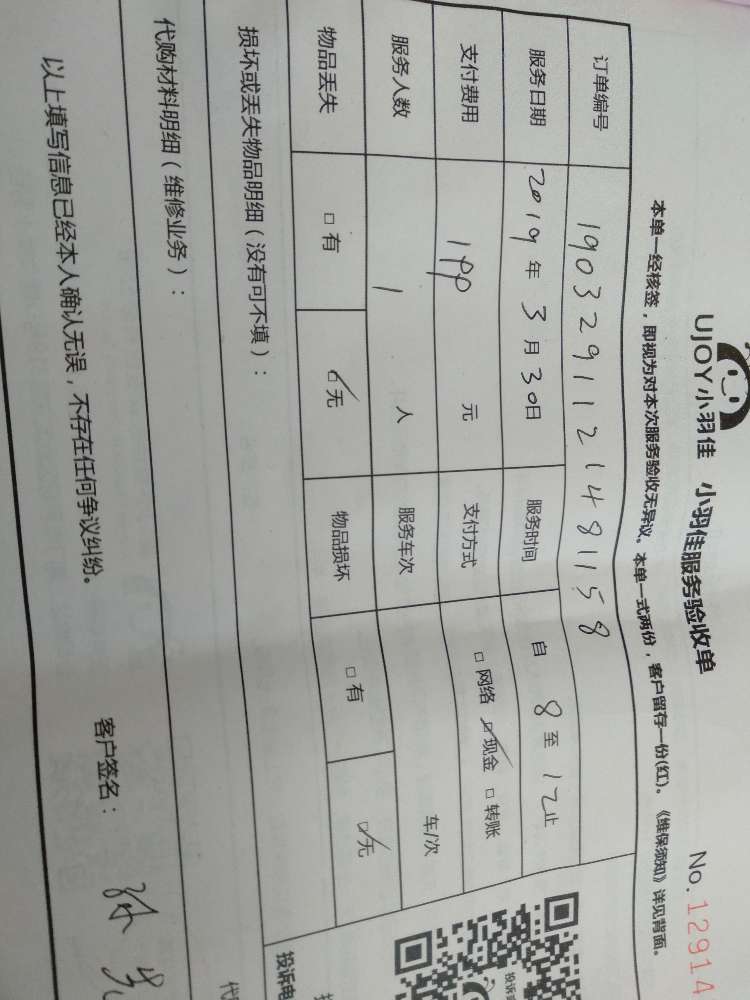 UJOY小羽佳 小羽佳服务验收单
No.12914
本单一经核签，即视为对本次服务验收无异议。本单一式两份，客户留存一份(红)。《维保须知》详见背面。
订单编号 1903291121481158
服务日期 2019年3月30日 服务时间 自 8 至 12止
支付费用 199 元 支付方式 □网络 ☑现金 □转账
服务人数 1 人 服务车次 车/次
物品丢失 □有 ☑无 物品损坏 □有 ☑无
损坏或丢失物品明细（没有可不填）：
投诉电
代购材料明细（维修业务）：
以上填写信息已经本人确认无误，不存在任何争议纠纷。 客户签名：